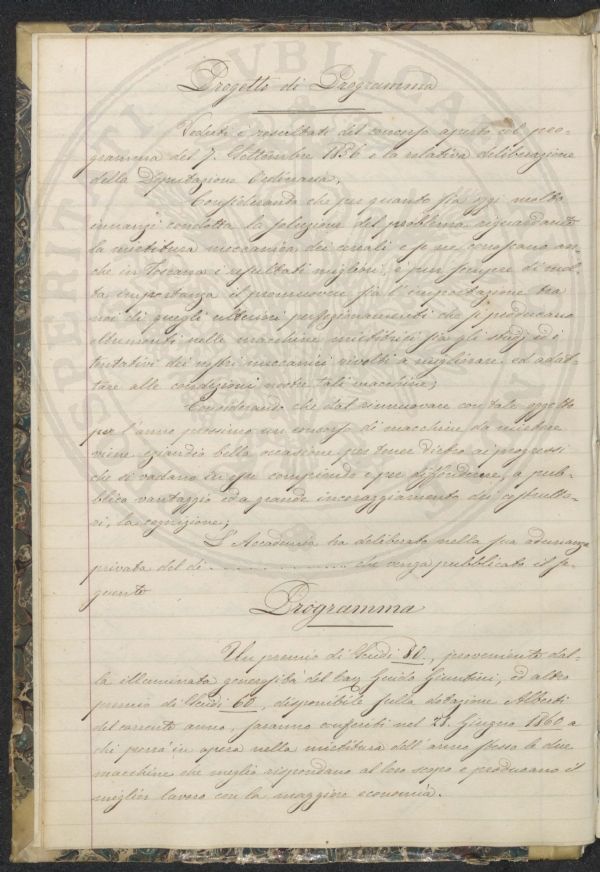 Progetto di Programma
Veduti i resultati del concorso aperto col pro-
gramma del 7. Settembre 1856 e la relativa deliberazione
della Deputazione Ordinaria;
Considerando che per quanto sia oggi molto
innanzi condotta la soluzione del problema riguardante
la mietitura meccanica dei cereali e se ne conoscano an-
che in Toscana i resultati migliori, è pur sempre di mol-
ta importanza il promuovere sia l'importazione tra
noi di quegli ulteriori perfezionamenti che si producano
altramenti nelle macchine mietitrici sia gli studj ed i
tentativi dei nostri meccanici rivolti a migliorare ed adat-
tare alle condizioni nostre tali macchine;
Considerando che dal rinnuovare con tale oggetto
per l'anno prossimo un concorso di macchine da mietere
viene eziandio bella occasione per tener dietro ai progressi
che si vadano in esse compiendo e per diffonderne, a pub-
blico vantaggio ed a grande incoraggiamento dei costrutto-
ri, la cognizione;
L'Accademia ha deliberato nella sua adunanza
privata del dì . . . . . . . . . . . . . . che venga pubblicato il se-
guente
Programma
Un premio di Scudi 80., proveniente dal-
la illuminata generosità del Cav. Guido Giuntini, ed altro
premio di Scudi 60, disponibile sulla dotazione Alberti
del corrente anno, saranno conferiti nel 21. Giugno 1860 a
chi porrà in opera nella mietitura dell'anno stesso le due
macchine che meglio rispondano al loro scopo e producano il
miglior lavoro con la maggiore economia.